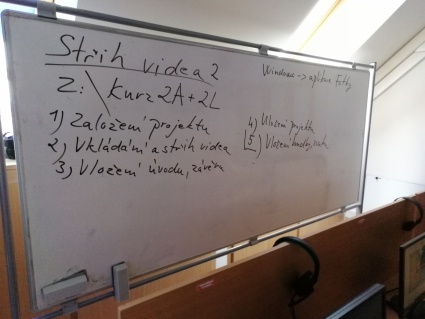 Střih videa 2
Z:\kurz 2A+2L
1) Založení projektu
2) Vkládání a střih videa
3) Vložení úvodu, závěru
Windows -> aplikace Fotky
4) Uložení projektu
5) Vložení hudby,